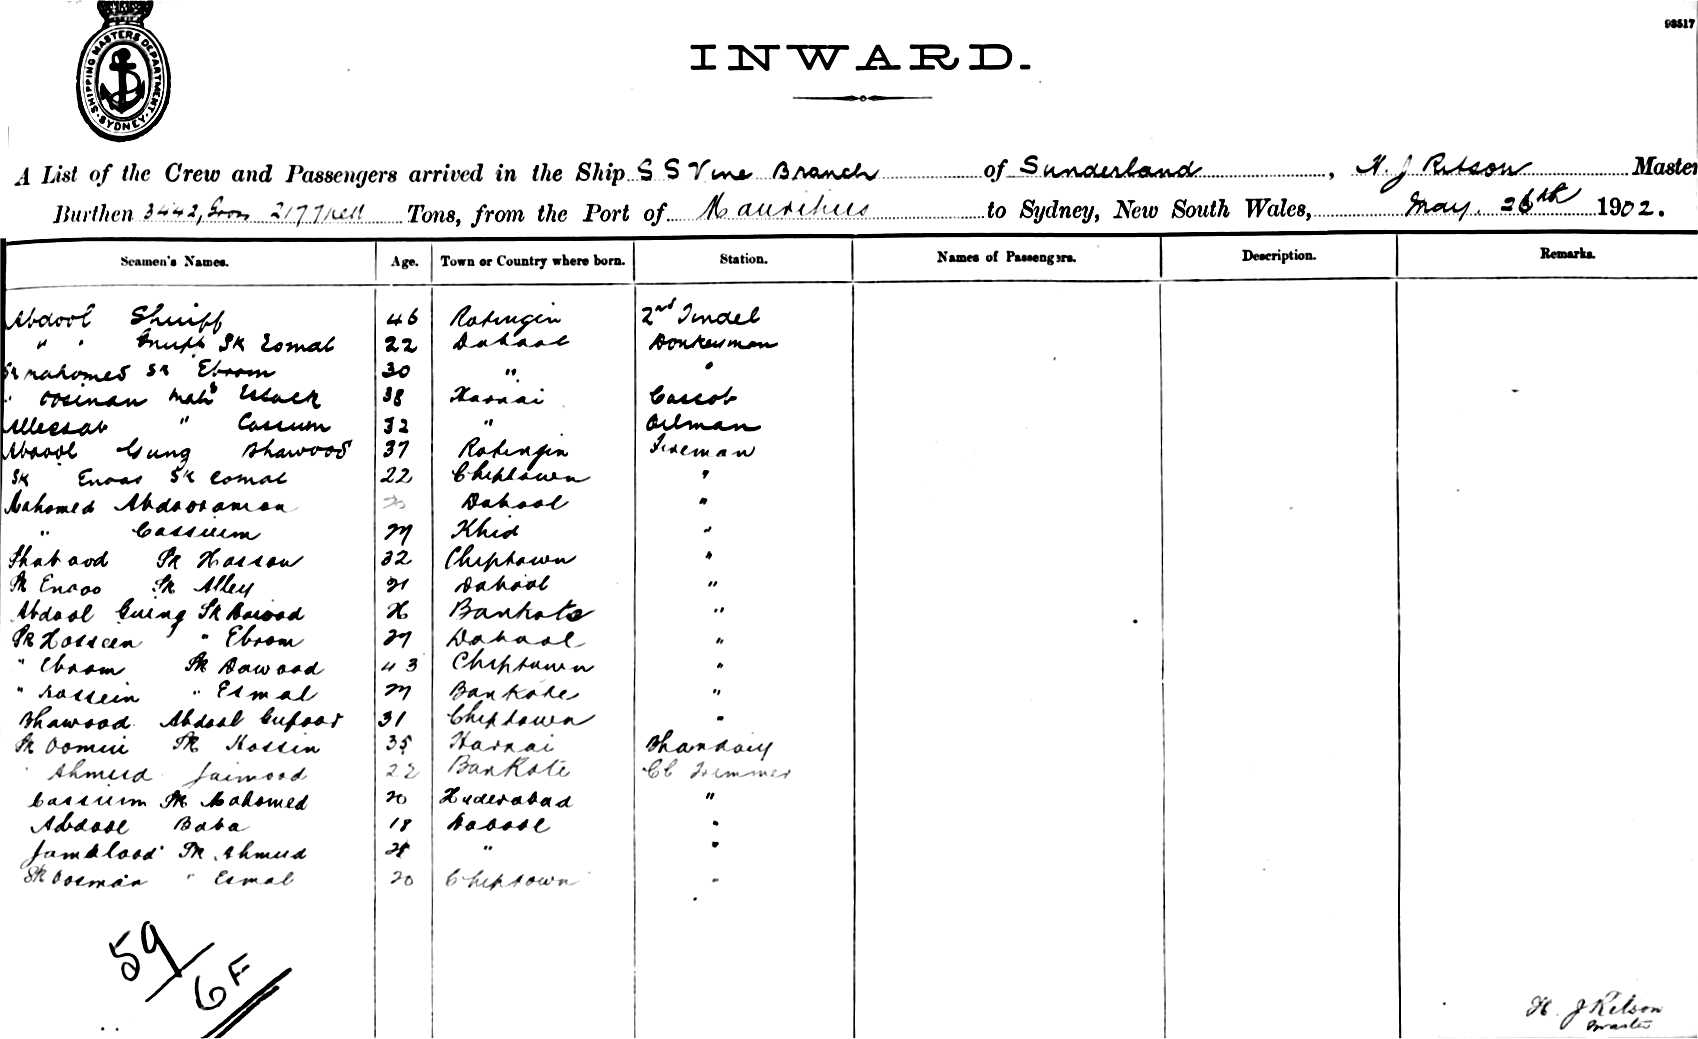 98517
SHIPPING MASTERS DEPARTMENT. SYDNEY.
INWARD.
A List of the Crew and Passengers arrived in the Ship S S Vine Branch of Sunderland, H. J Ritson Master
Burthen 3442, Gross 2177 nett Tons, from the Port of Mauritius to Sydney, New South Wales, May. 26th 1902.
Seamen's Names. Age. Town or Country where born. Station. Names of Passengers. Description. Remarks.
Abdool Shuiff 46 Ratingin 2nd Tindel
" " SK Esmal 22 Dabool Donkeyman
SK Mahomed SK Ebrom 30 " "
" Oosman Mahd Essack 38 Harnai Cassob
" Cassum 32 " Oilman
Abdool Gung Dhawood 37 Ratingin Fireman
SK Enoos SK Esmal 22 Chiptown "
Mahomed Abdooraman Dabool "
" Cassum 27 Khid "
SK Hassan 32 Chiptown "
SK Enoos SK Alley 21 Dabool "
Abdool SK Dawood Bankote "
SK Hossein " Ebrom 27 Dabool "
" Ebrom SK Dawood 43 Chiptown "
" Hossein " Esmal 27 Bankote "
Dhawood Abdool Gufoor 31 Chiptown "
SK SK Hossin 35 Harnai Bhandary
" Ahmed 22 Bankote Cl Trimmer
Cassum SK Mahomed 20 Hiderabad "
Abdool Baba 18 Dabool "
SK Ahmed 28 " "
SK Oosman " Esmal 20 Chiptown "
59
6 F
H. J Ritson
Master